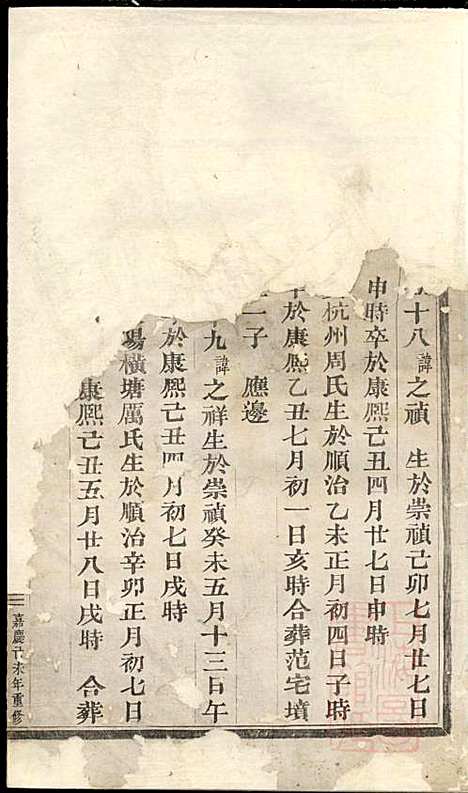 十八諱之禎　生於崇禎己卯七月廿七日
申時卒於康熙己丑四月廿七日申時
杭州周氏生於順治乙未正月初四日子時
於康熙乙丑七月初一日亥時合葬范宅墳
一子　應邊
九諱之祥生於崇禎癸未五月十三日午
於康熙己丑四月初七日戌時
陽橫塘厲氏生於順治辛卯正月初七日
康熙己丑五月廿八日戌時　合葬
嘉慶己未年重修